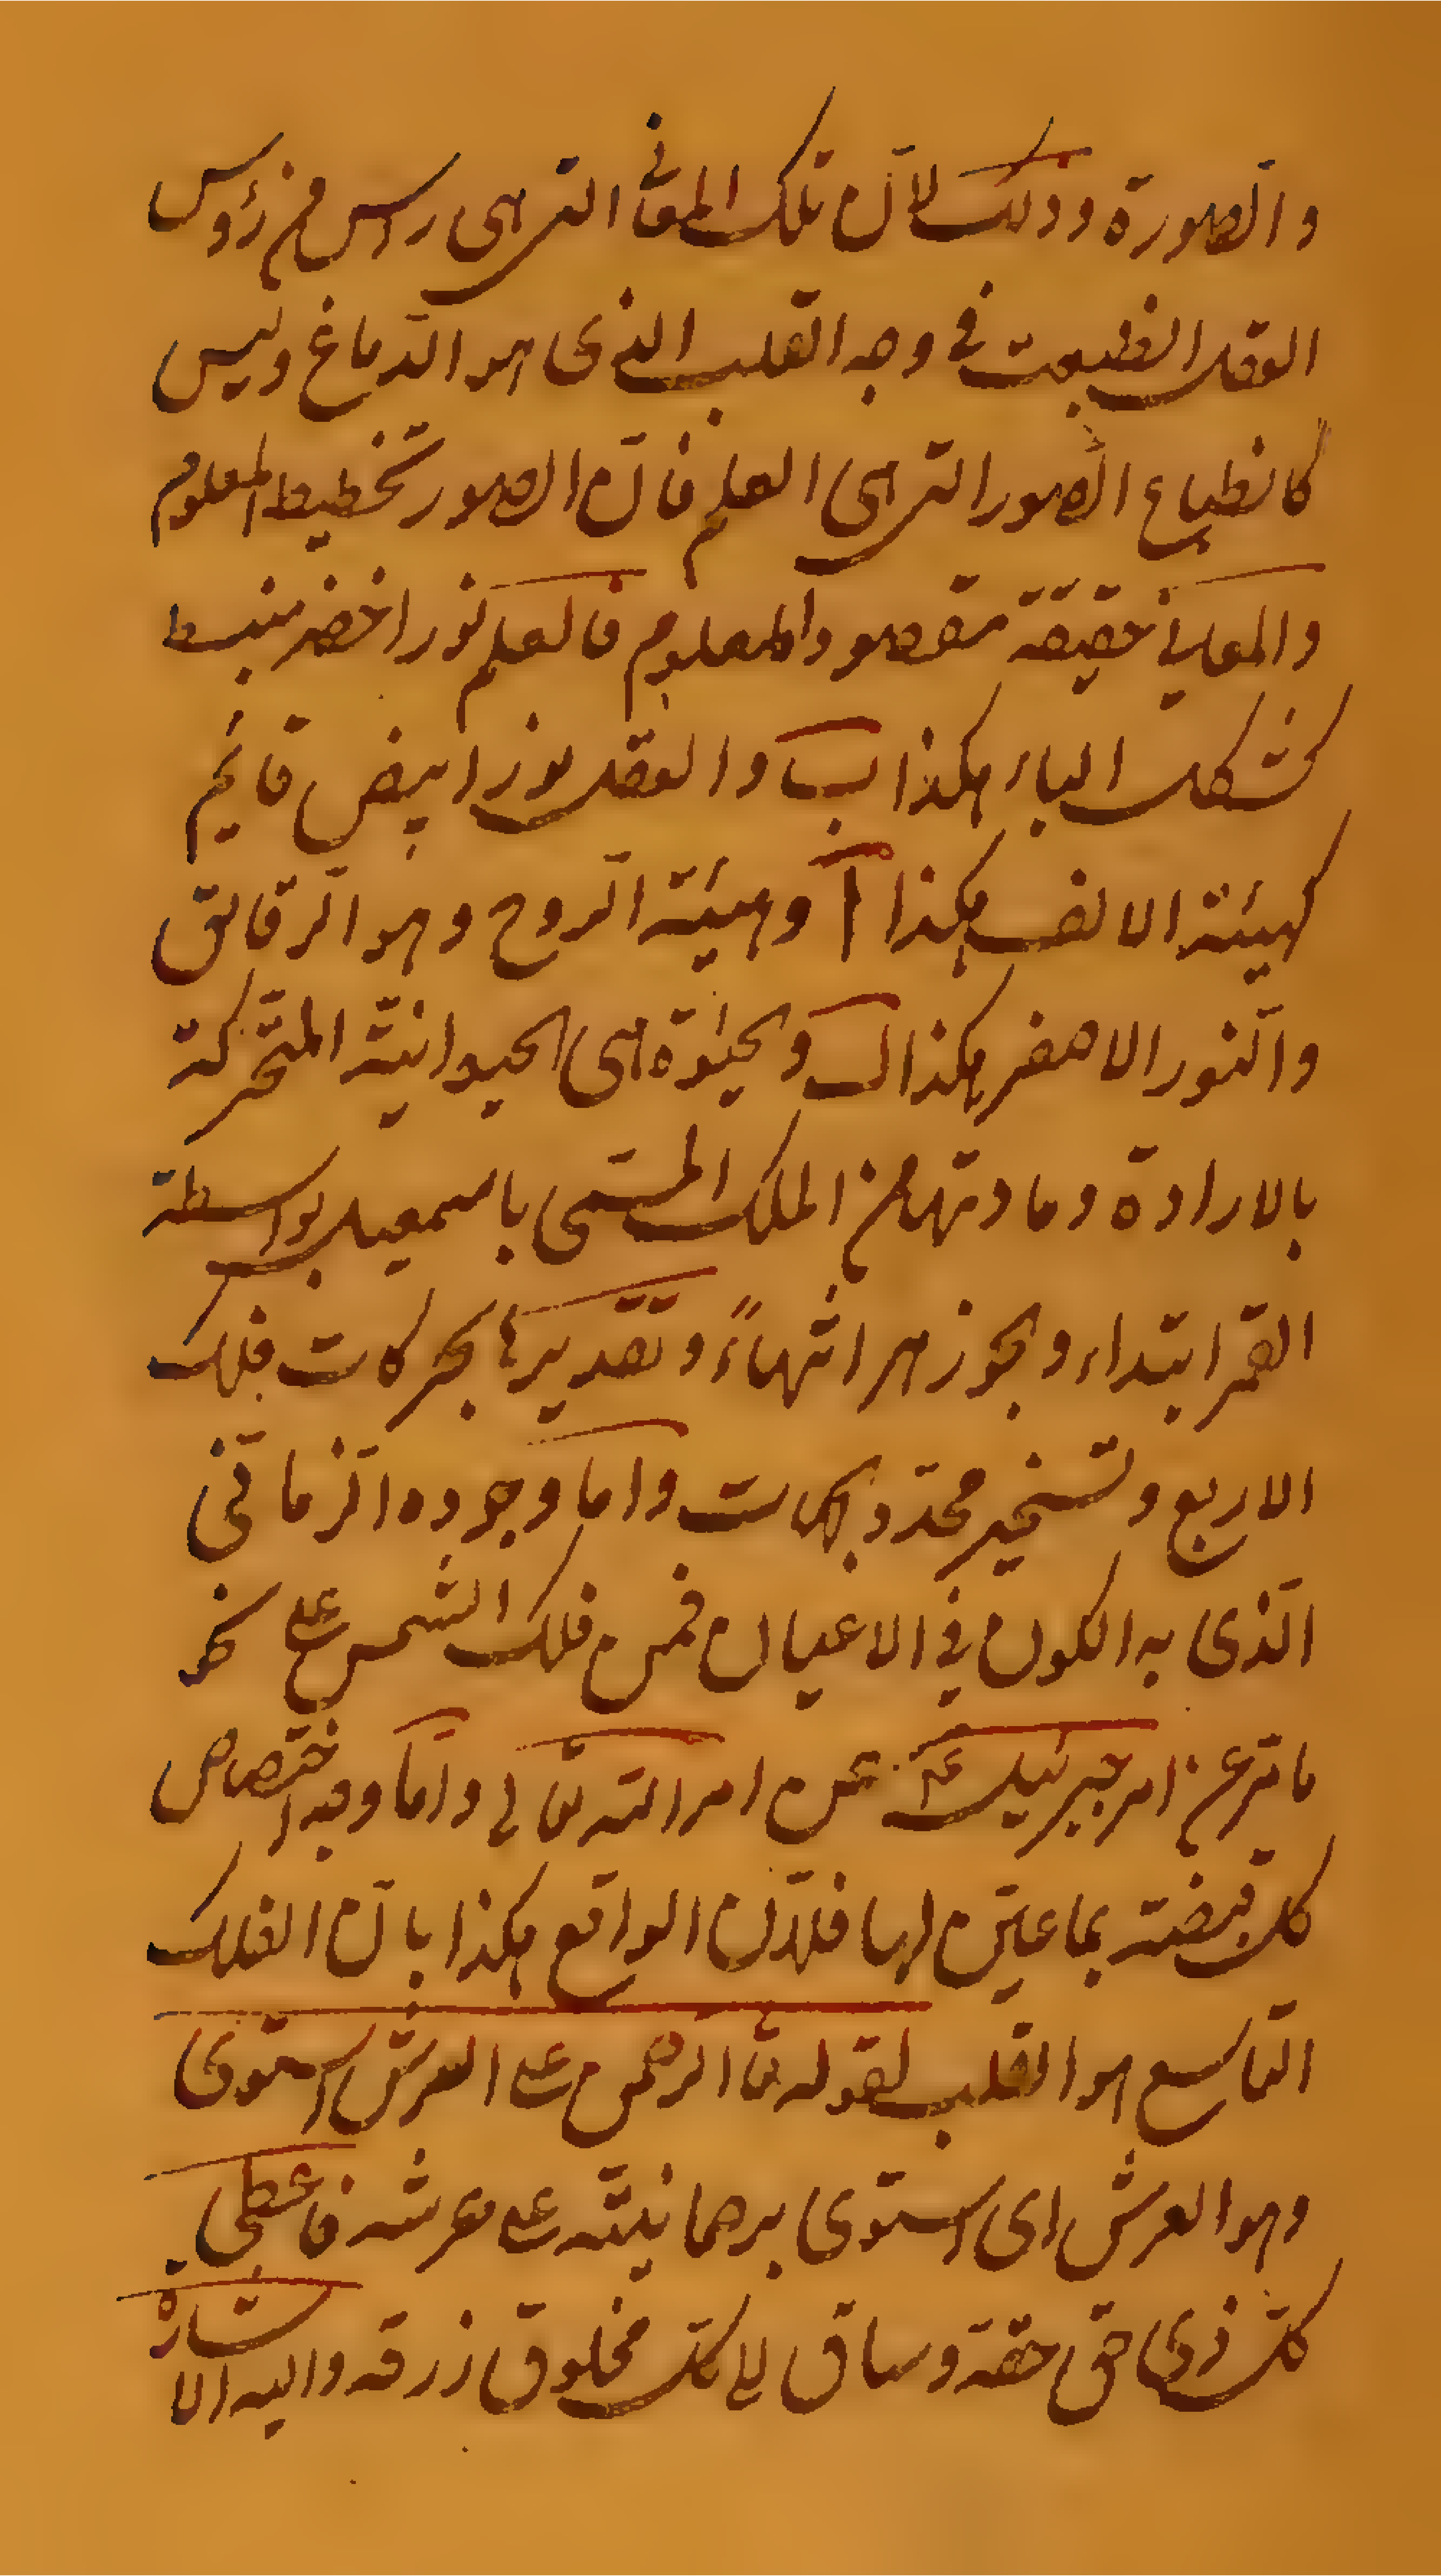 والصورة وذلك لأنّ تلك المعاني التي هي رأس من رؤس
العقل انطبعت في وجه القلب الذي هو الدّماغ وليس
كانطباع الصّور التي هي العلم فانّ الصور تخطيط المعلوم
والمعاني حقيقة مقصود المعلوم فالعلم نور اخضر منبسط
كشكل الباء هكذا ب والعقل نور ابيض قائم
كهيئة الالف هكذا ا وهيئة الرّوح وهو الرّقائق
والنّور الاصفر هكذا ل وحيٰوة هي الحيوانيّة المتحركة
بالارادة ومادتها من الملك المسمّى باسمعيل بواسطة
القمر ابتداء وبجوزهر انتهاءً وتقديرها بحركات فلك
الاربع وتسخير محدّد بجهات واما وجوده الزّمانّي
الّذي به الكون في الاعيان فمن فلك الشمس على نحو
ما مرّ عن امر جبرئيل ع عن امر الله تعالى وامّا وجه اختصاص
كل قبضة بما عيّن لها فلانّ الواقع هكذا بانّ الفلك
التاسع هو القلب لقوله تعا الرحمن على العرش استوى
وهو العرش اي استوى برحمانيّته على عرشه فاعطى
كلّ ذي حق حقّه وساق الى كلّ مخلوق رزقه واليه الاشارة